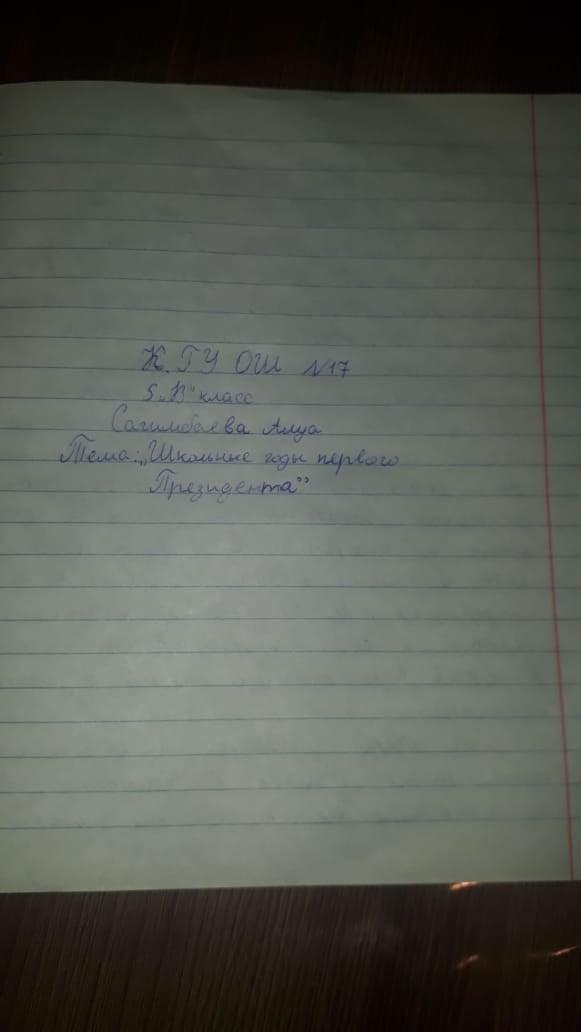 К. ГУ ОШ №17
5 „В" класс
Сагимбаева Алуа
Тема: „Школьные годы первого
Президента"